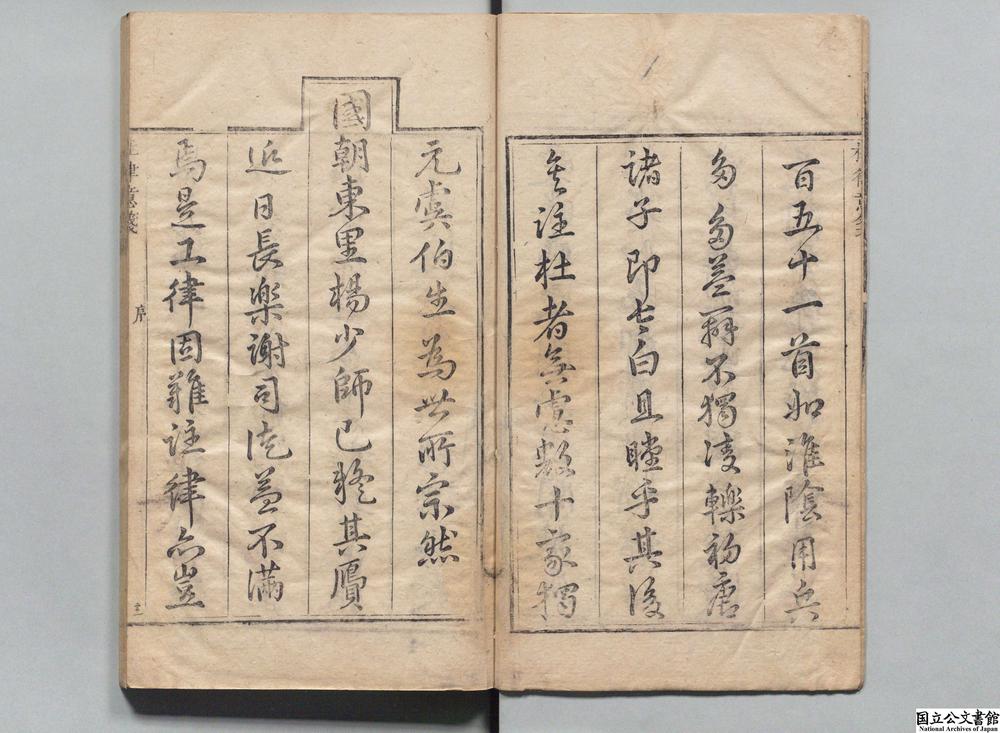 百五十一首如淮陰用兵
多多益辦不獨凌轢初唐
諸子即七白且瞠乎其後
矣註杜者無慮數十家獨
元虞伯生為世所宗然
國朝東里楊少師已稱其贋
近日長樂謝司
益不滿
焉是工律固難註律亦豈
杜律意箋
序
国立公文書館
National Archives of Japan